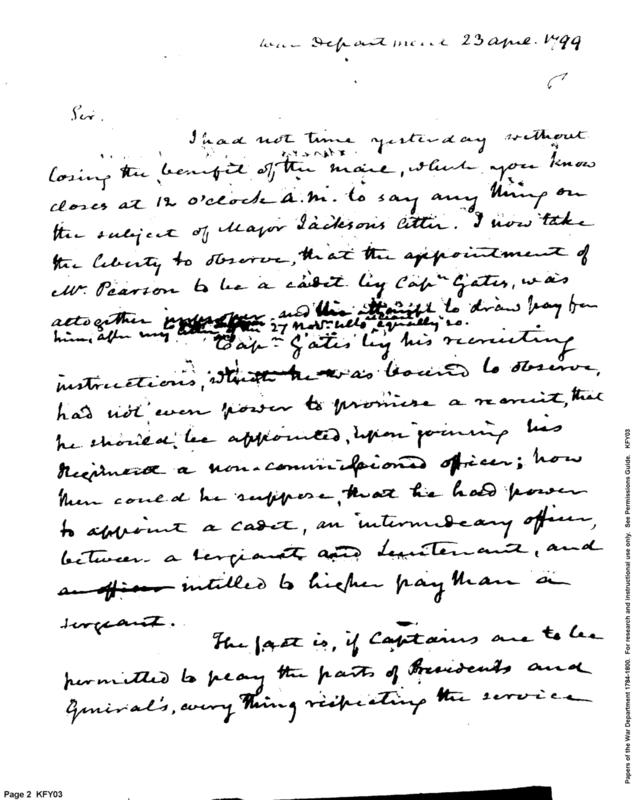 War Department 23 April. 1799
Sir.
I had not time yesterday without
losing the benefit of the mail, which you know
closes at 12 o'clock A.M. to say any thing on
the subject of Major Jacksons letter. I now take
the liberty to observe, that the appointment of
Mr. Pearson to be a cadet by Capn Gates, was
altogether improper and the attempt to draw pay for
him, after my letter of the 27 Novr. ullo. equally so.
Capn Gates by his recruiting
instructions, which he was bound to observe,
had not even power to promise a recruit, that
he should be appointed, upon joining his
Regiment a non-commissioned officer; how
then could he suppose, that he had power
to appoint a cadet, an intermediary officer,
between a sergeant and Lieutenant, and
an officer intitled to higher pay than a
sergeant.
The fact is, if Captains are to be
permitted to play the parts of Presidents and
General's, every thing respecting the service
Page 2 KFY03
Papers of the War Department 1784-1800. For research and instructional use only. See Permissions Guide. KFY03